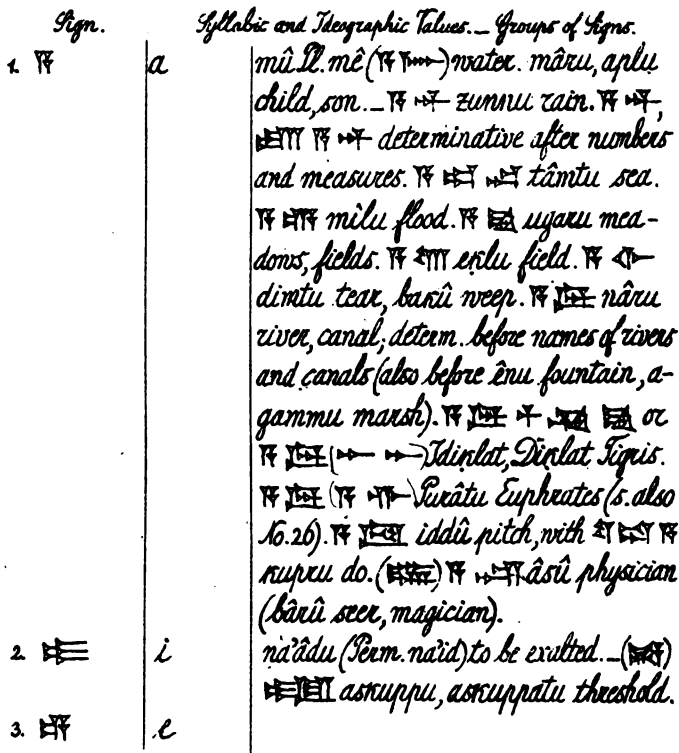 Sign. Syllabic and Ideographic Values. _ Groups of Signs.
1. 𒀀 a mû Pl. mê (𒀀 𒎌) water. mâru, aplu
child, son. _ 𒀀 𒀭 zunnu rain. 𒀀 𒀭,
𒀀 𒀭 determinative after numbers
and measures. 𒀀 𒀊 𒁀 tâmtu sea.
𒀀 𒆗 mîlu flood. 𒀀 𒃼 ugaru mea-
dows, fields. 𒀀 𒊮 eklu field. 𒀀 𒅆
dimtu tear, bakû weep. 𒀀 𒇉 nâru
river, canal; determ. before names of rivers
and canals (also before ênu fountain, a-
gammu marsh). 𒀀 𒇉 𒈦 𒄘 𒃼 or
𒀀 𒇉 Idiklat, Diklat Tigris.
𒀀 𒇉 Purâtu Euphrates (s. also
No. 26). 𒀀 iddû pitch, with 𒀀
kupru do. 𒀀 𒍪 âsû physician
(bârû seer, magician).
2. 𒄿 i na'âdu (Perm. na'id) to be exalted. _
askuppu, askuppatu threshold.
3. 𒂊 e